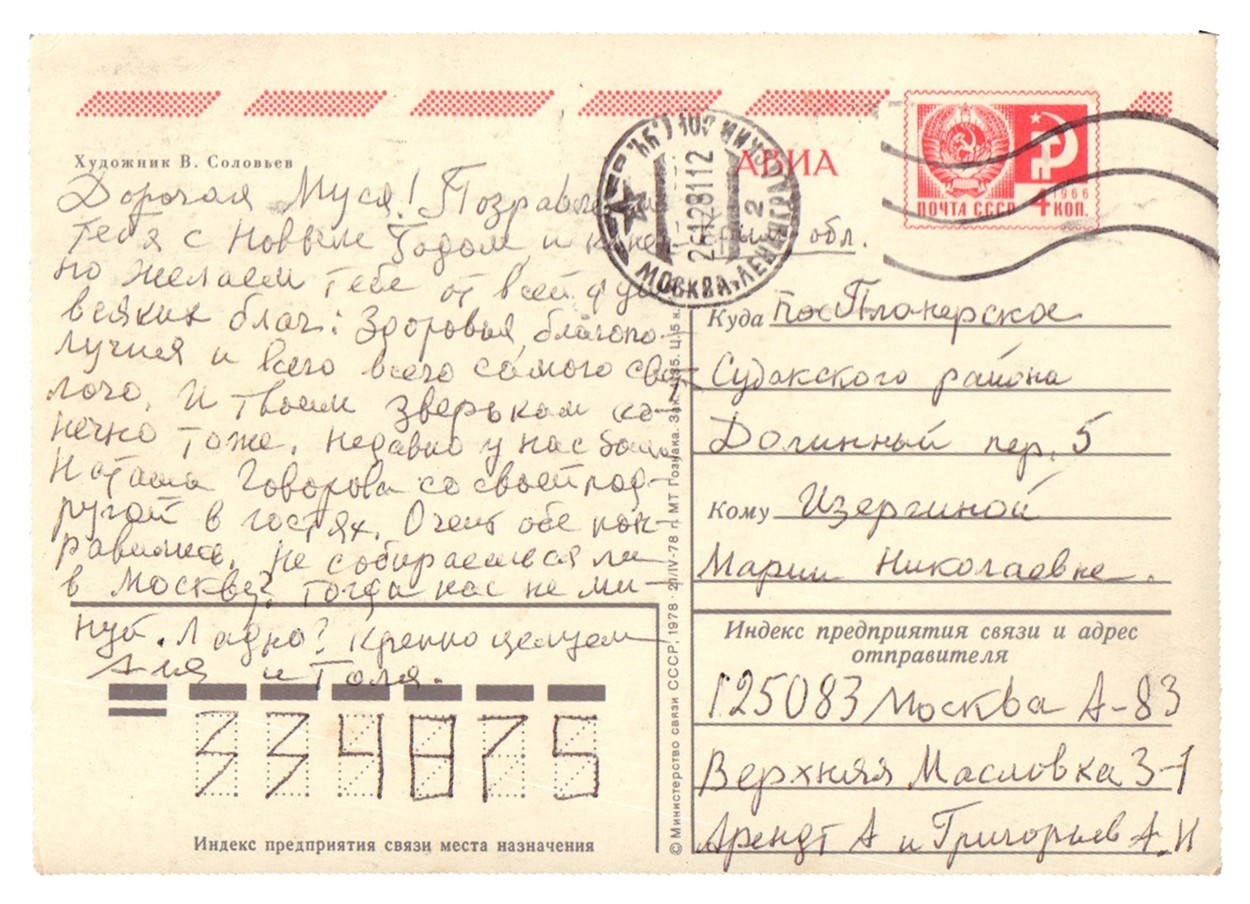 Художник В. Соловьев
АВИА
ПОЧТА СССР 4 КОП.
1966
МОСКВА, ЛЕНИНГРАД
2
26128112
Дорогая Муся! Поздравляем
тебя с Новым Годом и конеч-
но желаем тебе от всей души
всяких благ: здоровья, благопо-
лучия и всего всего самого свет-
лого. И твоим зверькам ко-
нечно тоже. Недавно у нас была
Наташа Говорова со своей под-
ругой в гостях. Очень обе пон-
равились. Не собираешься ли
в Москву? Тогда нас не ми-
нуй. Ладно? Крепко целуем
Аля и Толя.
обл.
Куда пос Планерское
Судакского района
Долинный пер. 5
Кому Изергиной
Марии Николаевне.
Индекс предприятия связи и адрес
отправителя
125083 Москва А-83
Верхняя Масловка 3-1
Арендт А и Григорьев А.И
334875
Индекс предприятия связи места назначения
© Министерство связи СССР, 1978 · 21/IV-78 г. МТ Гознака. Зак. Ц. 5 к.